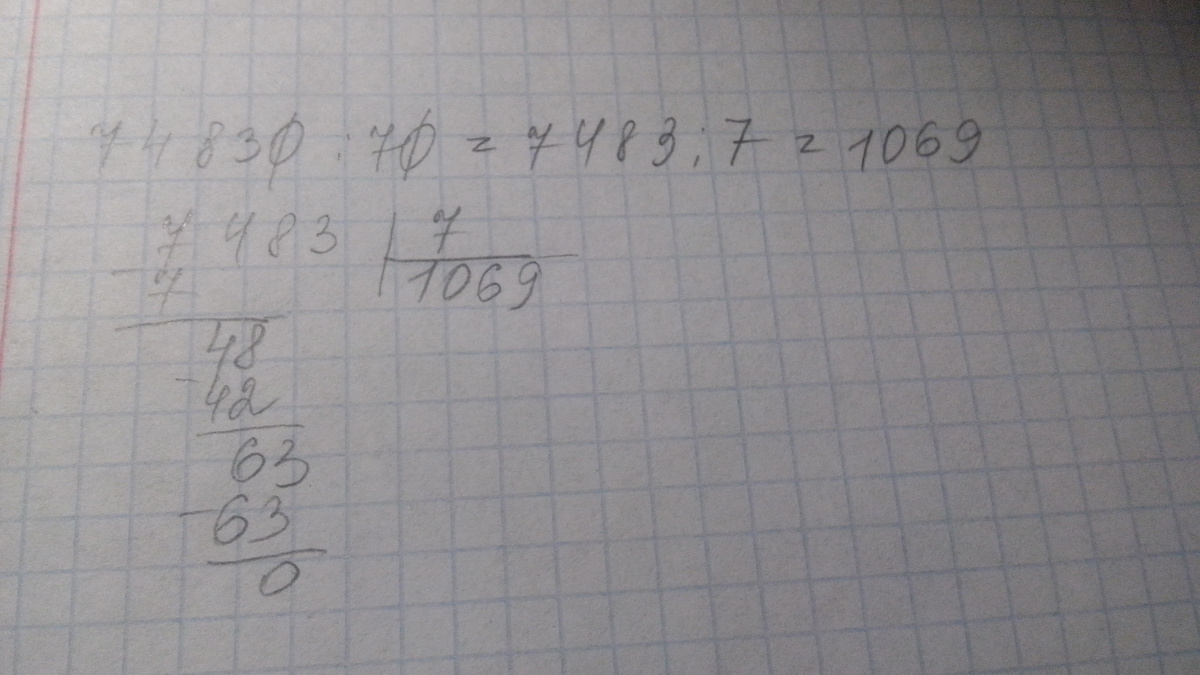 74830 : 70 = 7483 : 7 = 1069
7483 | 7
- 7 1069
48
- 42
63
- 63
0